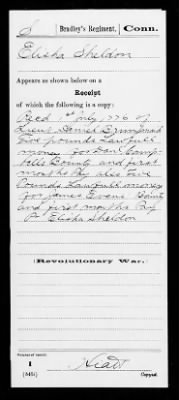 S | Bradley's Regiment, | Conn.
Elisha Sheldon
Appears as shown below on a
Receipt
of which the following is a copy:
Recd 1st July 1776 of
Lieut Daniel
five pounds Lawfull
money for Dan Camp-
bells Bounty and first
months Pay also five
Pounds Lawfull money
for James Evans Bounty
and first months Pay
Pr Elisha Sheldon
(Revolutionary War.)
Number of record:
1
(545t)
Copyist.